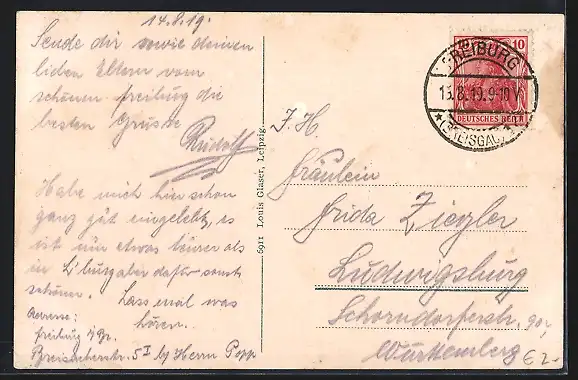 14.8.19.
Sende dir sowie deinen
lieben Eltern vom
schönen freiburg die
besten Grüsse
Rudolf
Habe mich hier schon
ganz gut eingelebt, es
ist nur etwas teurer als
in L'burg aber dafür sonst
schöner. Lass mal was
hören.
Adresse:
freiburg i/Br.
Breisacherstr. 5 I b/ Herrn Popp
6911 Louis Glaser, Leipzig.
FREIBURG
15.8.19.9-10V
* (BREISGAU)
10
DEUTSCHES REICH
F. H.
Fräulein
Frida Ziegler
Ludwigsburg
Schorndorferstr. 90,
Württemberg
€ 2.-